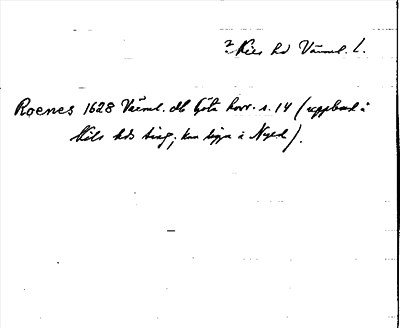 ? Kils hd Värml. l.
Roenes 1628 Värml. db Göta hovr. s. 14 (uppbud å
Kils hds ting; kan ligga i Nyed).